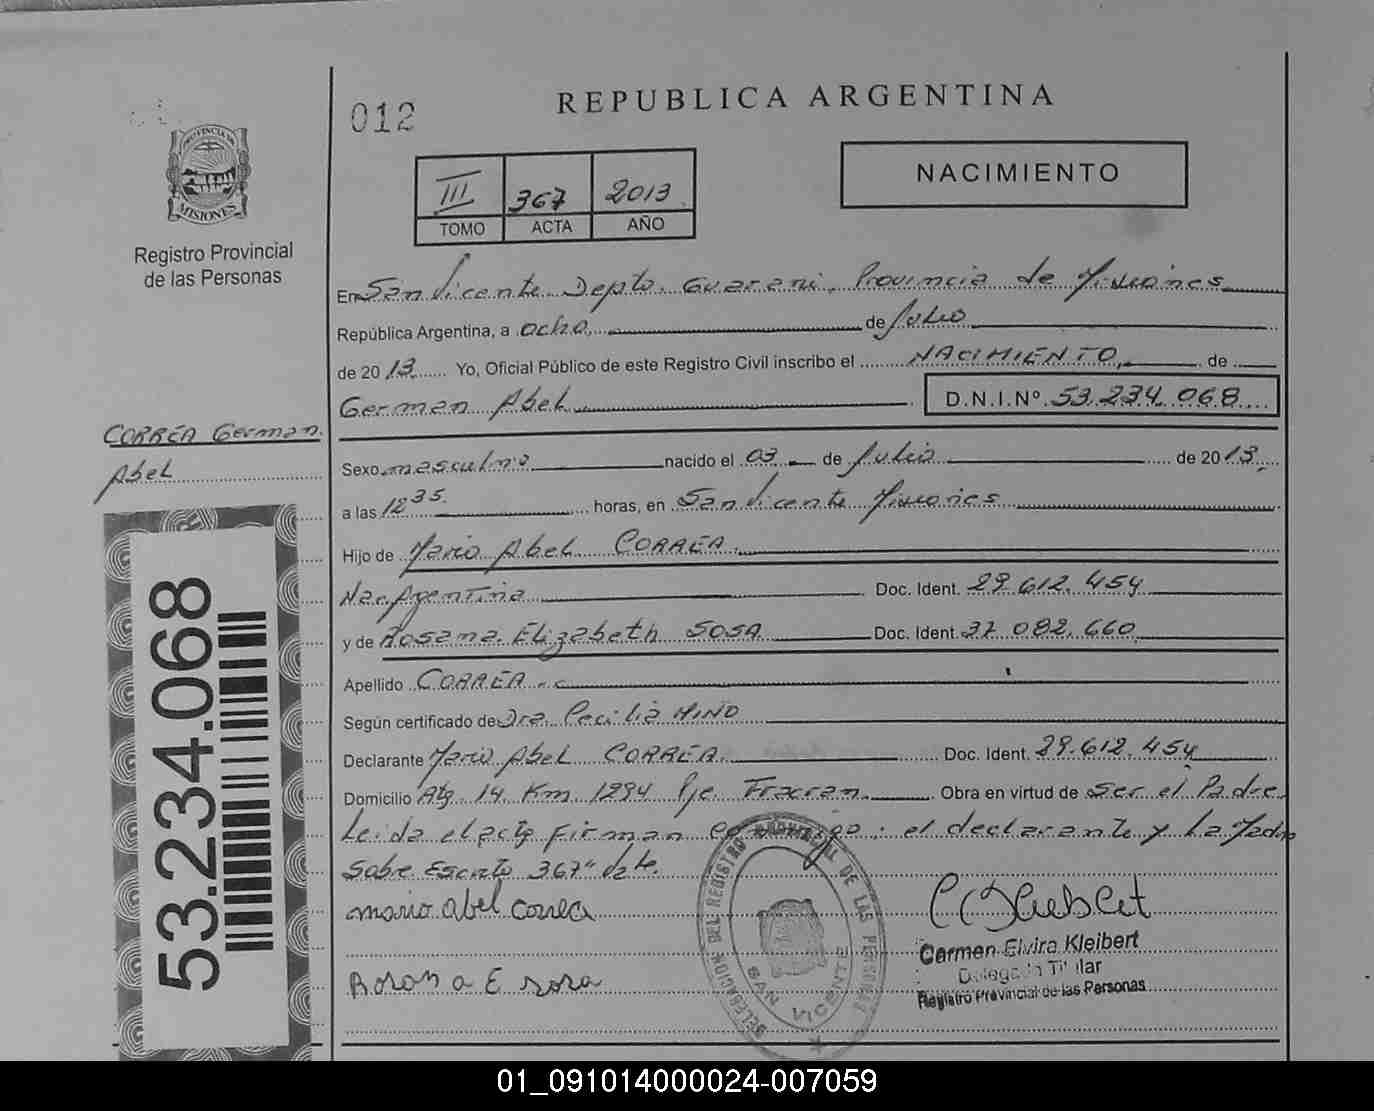 012
REPUBLICA ARGENTINA
PROVINCIA DE
MISIONES
Registro Provincial
de las Personas
III 367 2013
TOMO ACTA AÑO
NACIMIENTO
En San Vicente Depto. Guarani, Provincia de Misiones
República Argentina, a ocho de Julio
de 2013 Yo, Oficial Público de este Registro Civil inscribo el NACIMIENTO, de
German Abel D.N.I.Nº 53.234.068
CORREA German
Abel
Sexo masculino nacido el 03 de Julio de 2013,
a las 12 35 horas, en San Vicente Misiones
Hijo de Mario Abel CORREA
Nac. Argentina Doc. Ident. 29.612.454
y de Rosana Elizabeth SOSA Doc. Ident. 37.082.660
Apellido CORREA
Según certificado de Dra. Cecilia MINO
Declarante Mario Abel CORREA Doc. Ident. 29.612.454
Domicilio Km 1294 Pje. Fracran Obra en virtud de Ser el Padre
Leida el acta firman conmigo: el declarante y La Madre
Sobre Escrito 367" Vale.
mario abel correa
Rosana E sosa
Carmen Elvira Kleibert
Delegada Titular
Registro Provincial de las Personas
DELEGACION DEL REGISTRO PROVINCIAL DE LAS PERSONAS
SAN VICENTE
53.234.068
01_091014000024-007059